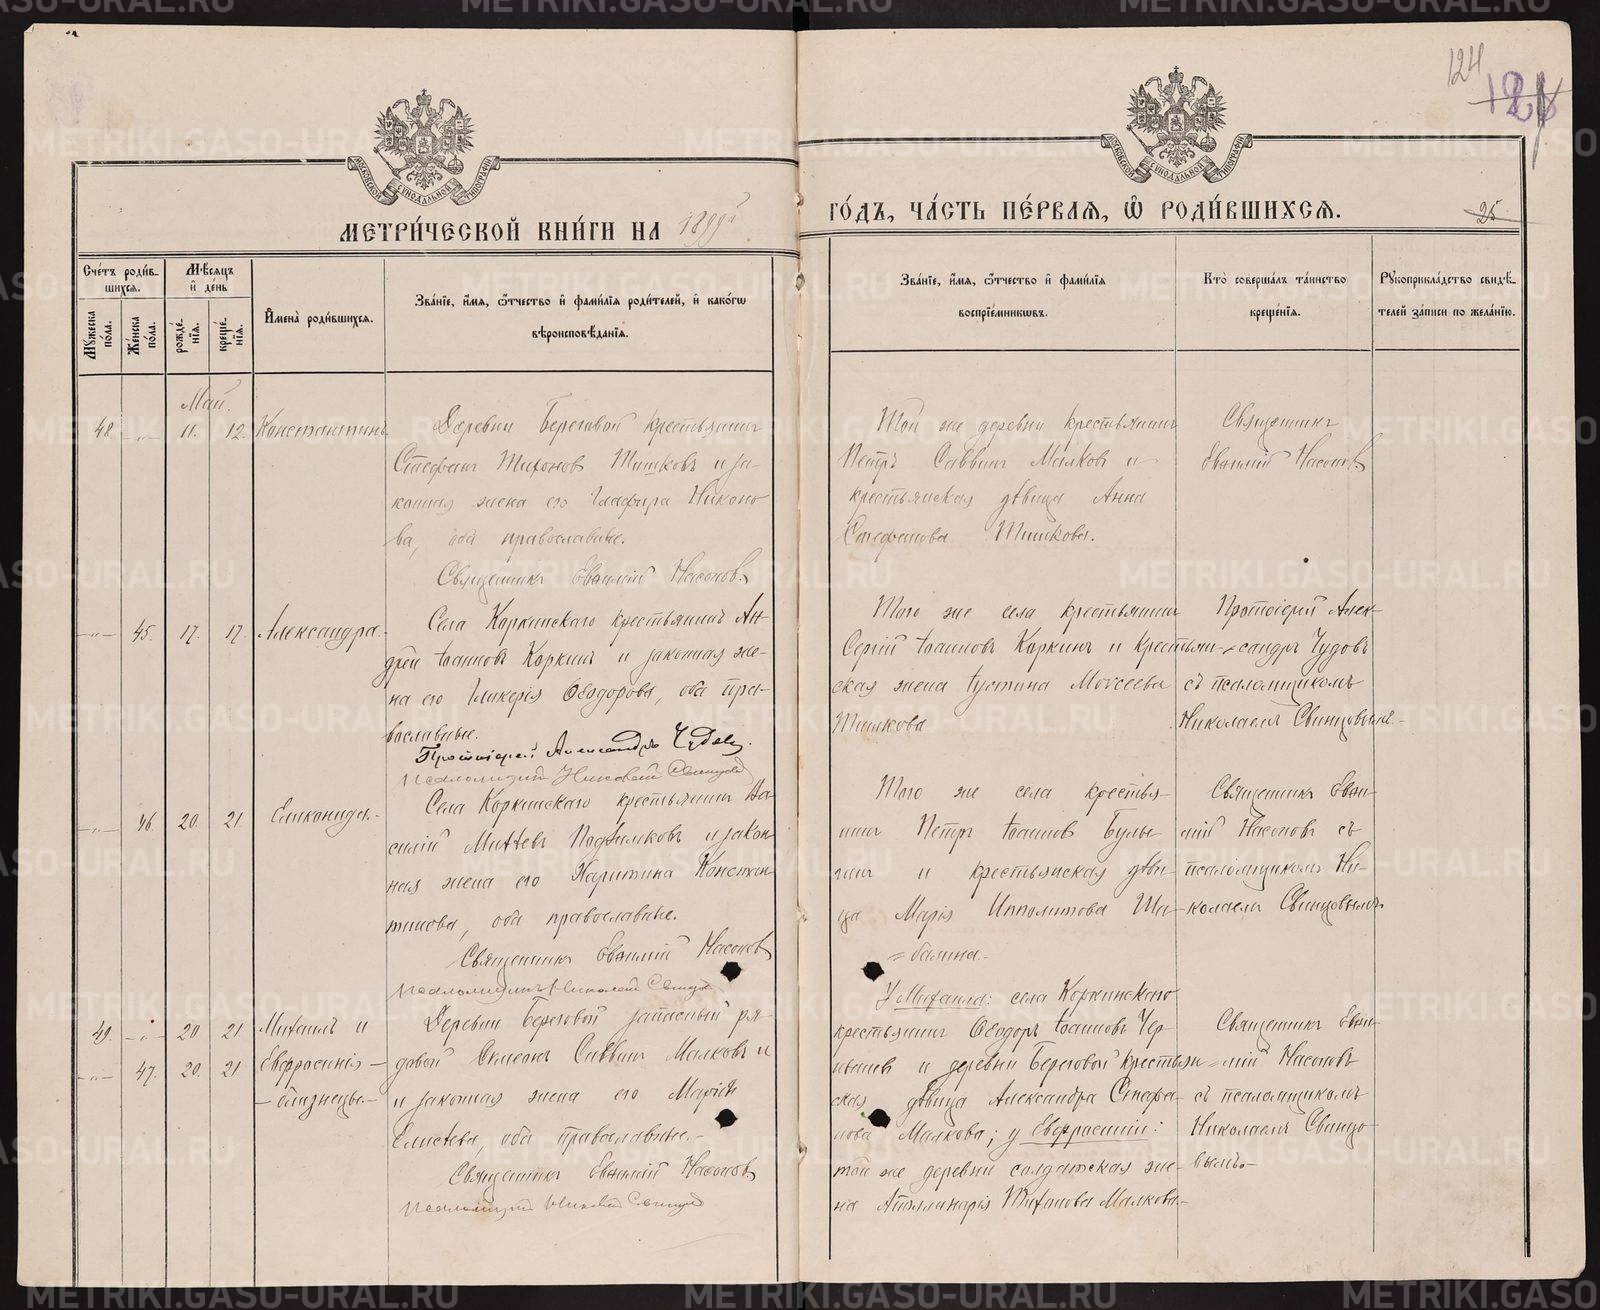 124
МЕТРИ́ЧЕСКОЙ КНИ́ГИ НА 1899й
ГО́ДЪ, ЧА́СТЬ ПЕ́РВАЯ, Ѿ РОДИ́ВШИХСЯ.
25
Сче́тъ роди́в-
шихся.
Мужеска по́ла.
Же́нска по́ла.
Мѣ́сяцъ и де́нь
рожде́-
нія.
креще́-
нія.
И҆мена̀ роди́вшихся.
Зва́ніе, и҆́мя, ѻ҆́тчество и҆ фами́лія роди́телей, и҆ како́гѡ
вѣроисповѣ́данія.
Зва́ніе, и҆́мя, ѻ҆́тчество и҆ фами́лія
воспріе́мникѡвъ.
Кто̀ соверша́лъ та́инство
креще́нія.
Рукоприкла́дство свидѣ́-
телей за́писи по жела́нію.
Май.
48. -„- 11. 12. Константинъ
Деревни Береговой крестьянинъ
Стефанъ Тихоновъ Тишковъ и за-
конная жена его Глафира Никоно
ва, оба православные.
Священникъ Евѳимій Насоновъ
Той же деревни крестьянинъ
Петръ Саввинъ Малковъ и
крестьянская дѣвица Анна
Стефанова Тишкова.
Священникъ
Евѳимій Насоновъ
-„- 45. 17. 17. Александра.
Села Коркинскаго крестьянинъ Ан-
дрей Іоанновъ Коркинъ и законная же-
на его Гликерія Ѳеодорова, оба пра-
вославные.
Протоіерей Александръ Чудовъ.
Псаломщикъ Николай Свинцовъ
Того же села крестьянинъ
Сергій Іоанновъ Коркинъ и крестьян-
ская жена Іустина Моѵсеева
Тишкова
Протоіерей Алек-
сандръ Чудовъ
съ псаломщикомъ
Николаемъ Свинцовымъ-
-„- 46 20. 21. Еликонида.-
Села Коркинскаго крестьянинъ Ва-
силій Матѳевъ и закон
ная жена его Харитина Констан
тинова, оба православные.
Священникъ Евѳимій Насоновъ
Псаломщикъ Николай Свинцовъ
Того же села крестья-
нинъ Петръ Іоанновъ Булы-
гинъ и крестьянская дѣви-
ца Марія Ипполитова Ша-
=балина.-
Священникъ Евѳи-
мій Насоновъ съ
псаломщикомъ Ни-
колаемъ Свинцовымъ
49. -„- 20 21. Михаилъ и
-„- 47. 20. 21 Евфросинія -
- близнецы.-
Деревни Береговой запасный ря-
довой Симеонъ Саввинъ Малковъ и
и законная жена его Марія
Елисѣева, оба православные.-
Священникъ Евѳимій Насоновъ
Псаломщикъ Николай Свинцовъ
У Михаила: села Коркинскаго
крестьянинъ Ѳеодоръ Іоанновъ Чер-
нышев и деревни Береговой крестьян
ская дѣвица Александра Стефа-
нова Малкова; у Евфросиніи:
той же деревни солдатская же-
на Аполлинарія Тихонова Малкова.-
Священникъ Евѳи-
=мій Насоновъ
съ псаломщикомъ
Николаемъ Свинцо
вымъ.-